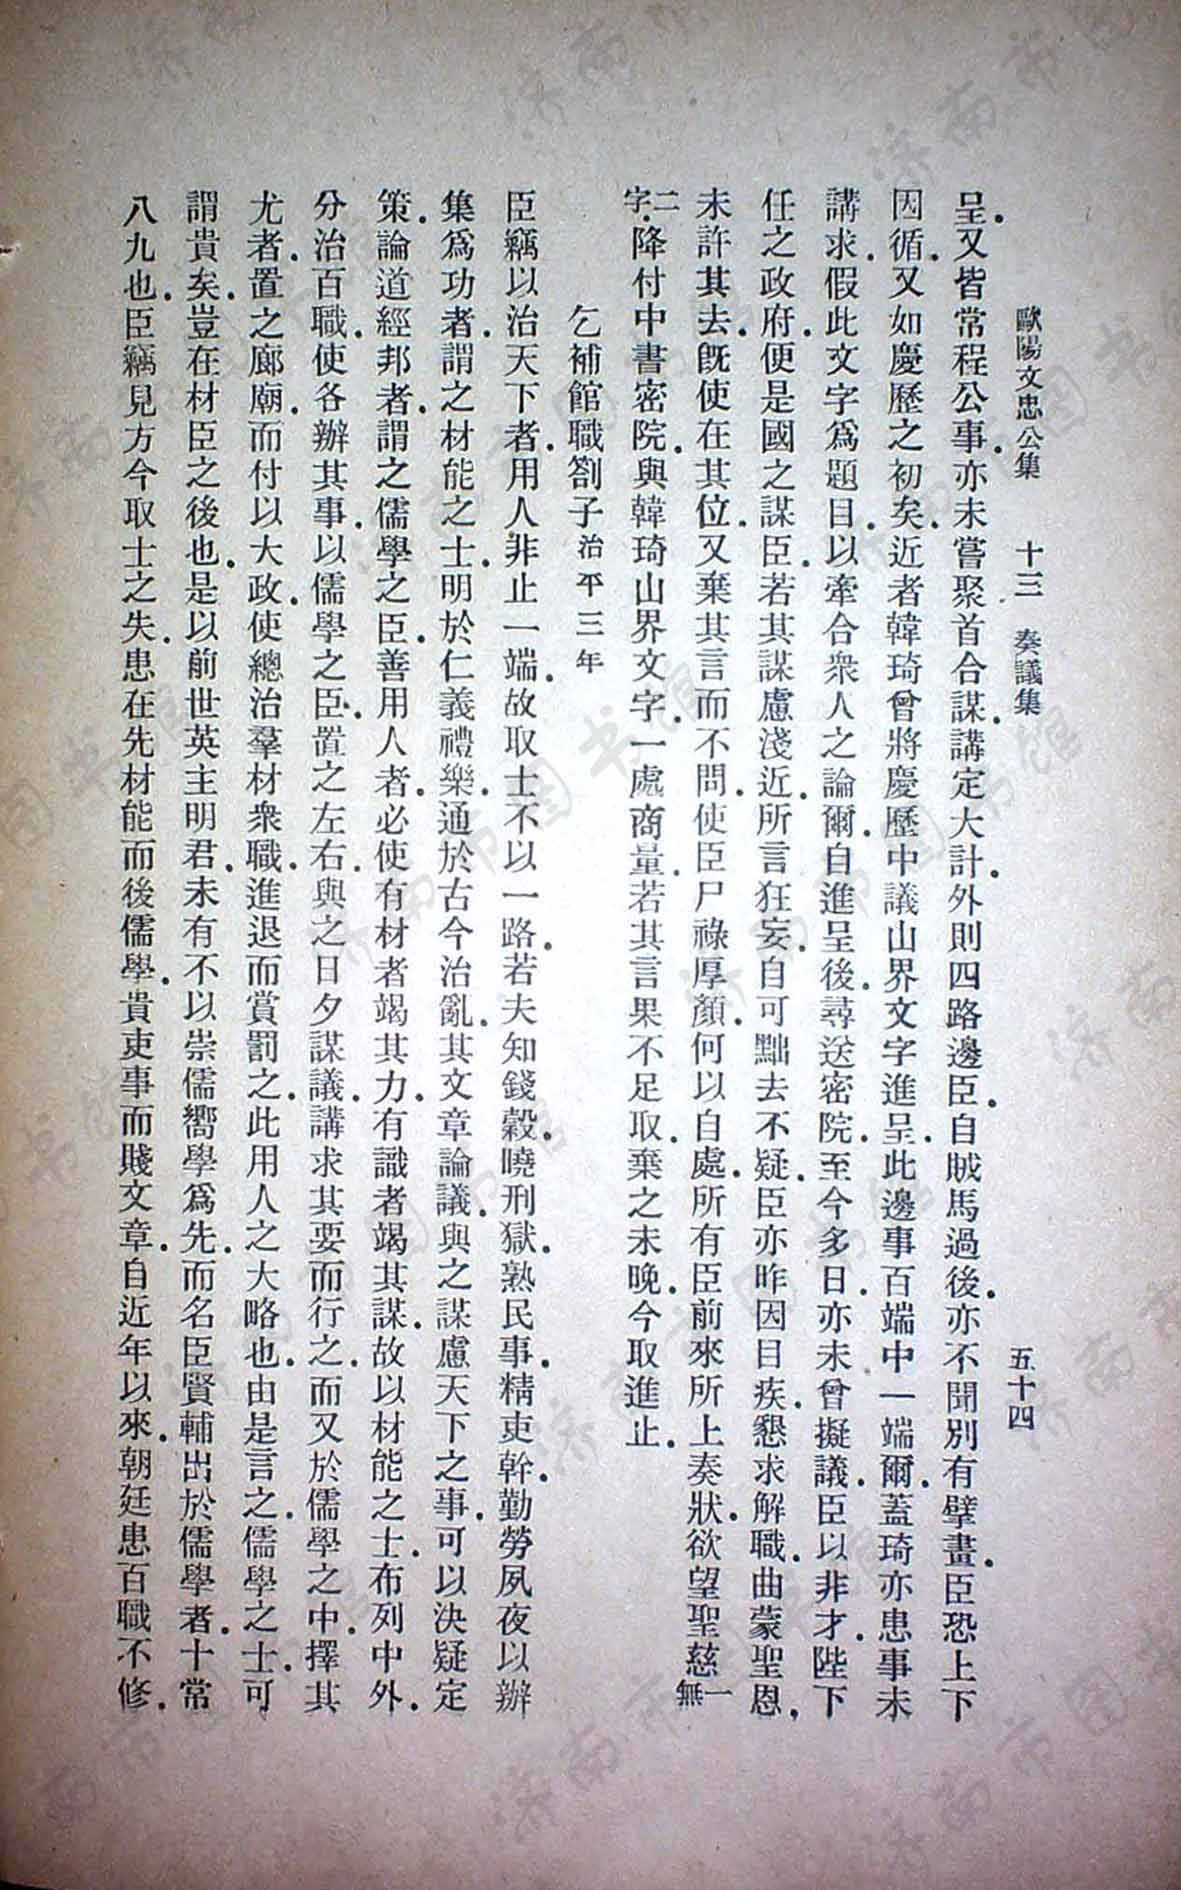 歐陽文忠公集　十三　奏議集　五十四
呈．又皆常程公事．亦未嘗聚首合謀．講定大計．外則四路邊臣．自賊馬過後．亦不聞別有擘畫．臣恐上下
因循．又如慶歷之初矣．近者韓琦曾將慶歷中議山界文字進呈．此邊事百端中一端爾．蓋琦亦患事未
講求．假此文字爲題目．以牽合衆人之論爾．自進呈後．尋送密院．至今多日．亦未曾擬議．臣以非才．陛下
任之政府．便是國之謀臣．若其謀慮淺近．所言狂妄．自可黜去不疑．臣亦昨因目疾．懇求解職．曲蒙聖恩，
未許其去．旣使在其位．又棄其言而不問．使臣尸祿厚顏．何以自處．所有臣前來所上奏狀．欲望聖慈一無
二字．降付中書密院．與韓琦山界文字．一處商量．若其言果不足取．棄之未晚．今取進止．
乞補館職劄子治平三年
臣竊以治天下者．用人非止一端．故取士不以一路．若夫知錢穀．曉刑獄．熟民事．精吏幹．勤勞夙夜以辦
集爲功者．謂之材能之士．明於仁義禮樂．通於古今治亂．其文章論議．與之謀慮天下之事．可以決疑定
策．論道經邦者．謂之儒學之臣．善用人者．必使有材者竭其力．有識者竭其謀．故以材能之士．布列中外．
分治百職．使各辦其事．以儒學之臣．置之左右．與之日夕謀議．講求其要而行之．而又於儒學之中．擇其
尤者．置之廊廟．而付以大政．使總治羣材衆職．進退而賞罰之．此用人之大略也．由是言之．儒學之士．可
謂貴矣．豈在材臣之後也．是以前世英主明君．未有不以崇儒嚮學爲先．而名臣賢輔出於儒學者．十常
八九也．臣竊見方今取士之失．患在先材能而後儒學．貴吏事而賤文章．自近年以來．朝廷患百職不修．